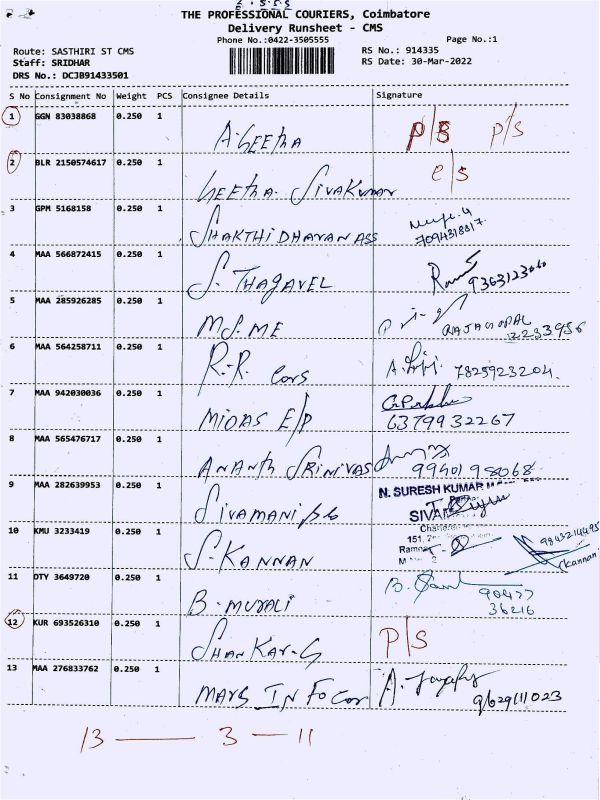 THE PROFESSIONAL COURIERS, Coimbatore
Delivery Runsheet - CMS
Phone No.:0422-3505555
Page No.:1
Route: SASTHIRI ST CMS
RS No.: 914335
Staff: SRIDHAR
RS Date: 30-Mar-2022
DRS No.: DCJB91433501
S No Consignment No Weight PCS Consignee Details Signature
1 GGN 83038868 0.250 1 A. GEETHA P/S P/S
2 BLR 2150574617 0.250 1 GEETHA. SIVAKUMAR
3 GPM 5168158 0.250 1 SHAKTHI DHARAN ASS
4 MAA 566872415 0.250 1 S. THAGAVEL
5 MAA 285926285 0.250 1 MS.ME RAJAGOPAL
6 MAA 564258711 0.250 1 R.R. CORS 7825923204.
7 MAA 942030036 0.250 1 MIDAS E/P 6379932267
8 MAA 565476717 0.250 1 ANANTH SRINIVAS 9940198068
9 MAA 282639953 0.250 1 SIVAMANI N. SURESH KUMAR
10 KMU 3233419 0.250 1 S. KANNAN 151, 9843214495
11 DTY 3649720 0.250 1 B. MURALI 90477
36216
12 KUR 693526310 0.250 1 SHANKAR.G P/S
13 MAA 276833762 0.250 1 MARS INFO COR 9629111023
13 — 3 — 11